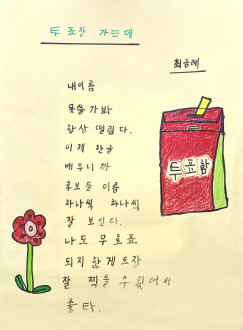 투표장 가는데
최슴레
내이름
못쓸가봐
항상 떨립다.
이제 한글
배우니까
루보들 이름
하나씩 하나씩
잘 보인다.
나도 무료표
되지 않게 도장
잘 찍을수 있어서
좋타.
투표함